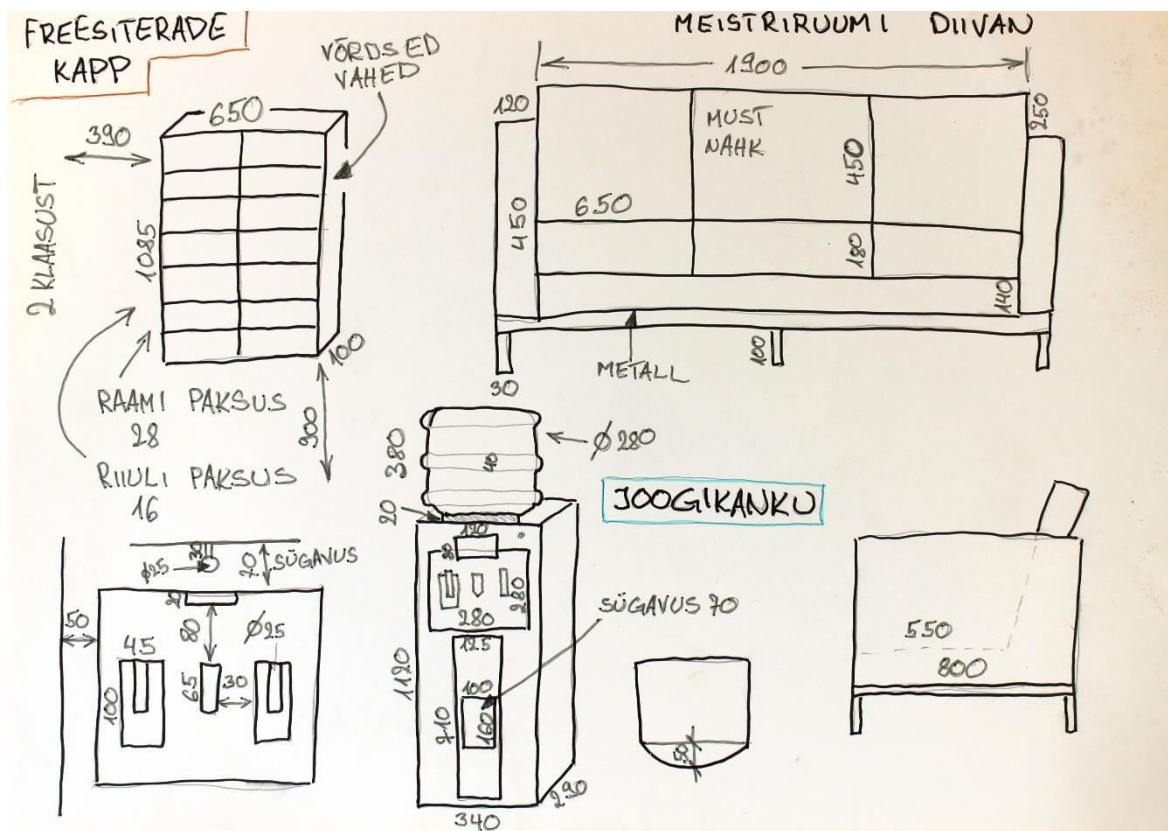 FREESITERADE
KAPP
VÕRDSED
VAHED
650
390
2 KLAASUST
1085
100
900
RAAMI PAKSUS
28
RIIULI PAKSUS
16
MEISTRIRUUMI DIIVAN
1900
120
250
MUST
NAHK
450
450
650
180
140
METALL
100
30
380
Ø280
40
20
JOOGIKANKU
120
280
280
SÜGAVUS 70
125
100
160
710
1120
290
340
30
Ø25
70
SÜGAVUS
50
20
80
Ø25
45
100
65
30
50
550
800